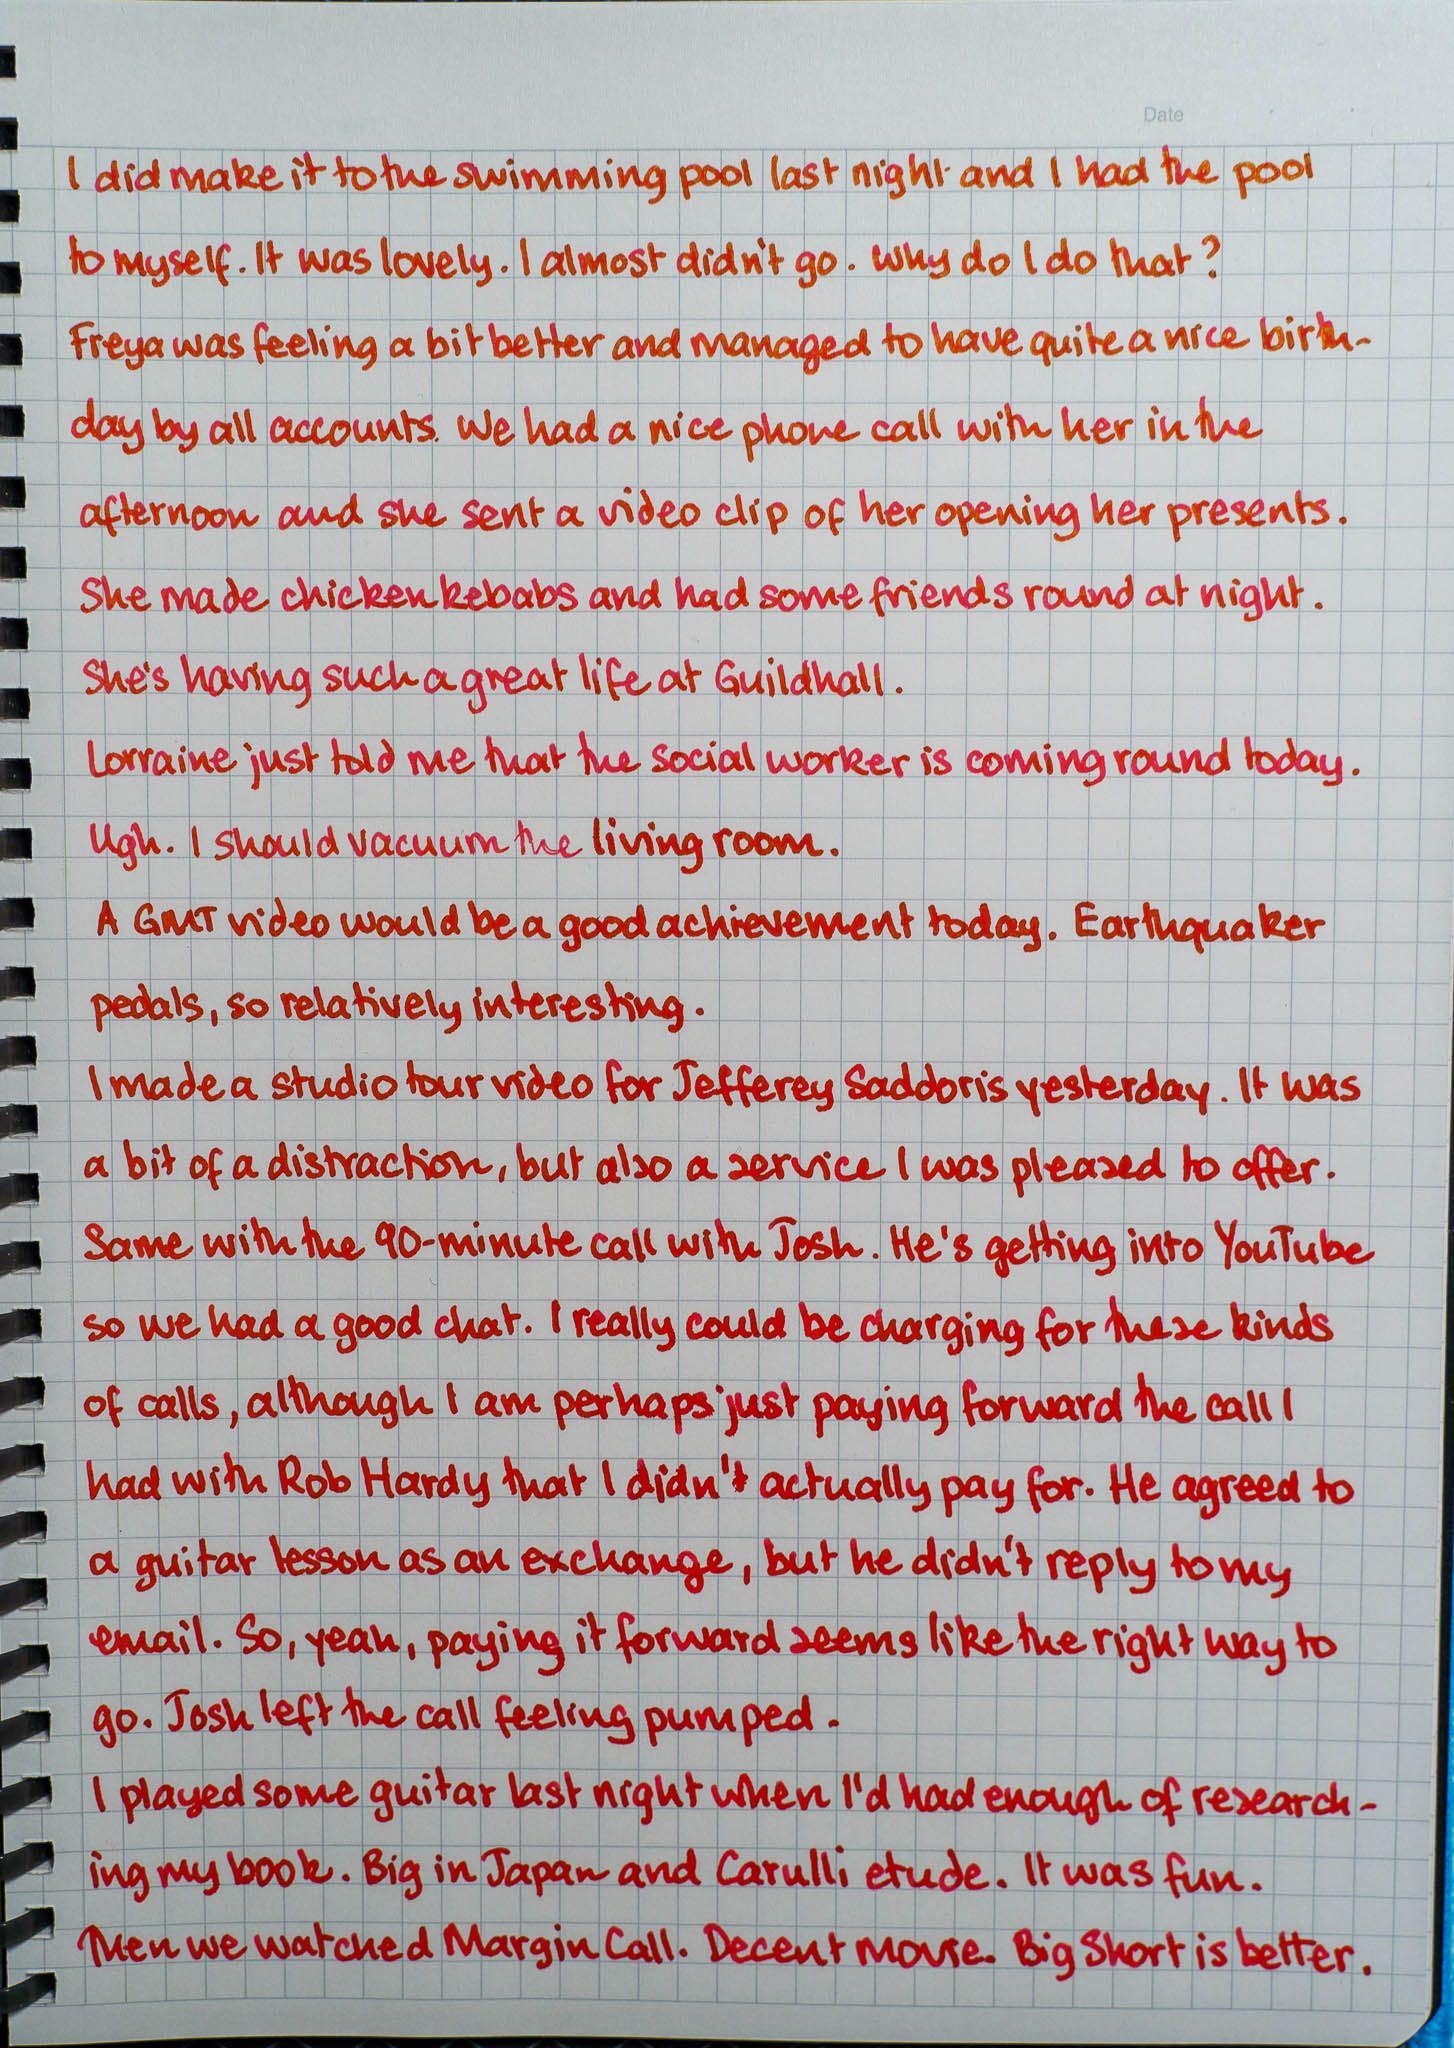 Date
I did make it to the swimming pool last night and I had the pool
to myself. It was lovely. I almost didn't go. Why do I do that?
Freya was feeling a bit better and managed to have quite a nice birth-
day by all accounts. We had a nice phone call with her in the
afternoon and she sent a video clip of her opening her presents.
She made chicken kebabs and had some friends round at night.
She's having such a great life at Guildhall.
Lorraine just told me that the social worker is coming round today.
Ugh. I should vacuum the living room.
A GMT video would be a good achievement today. Earthquaker
pedals, so relatively interesting.
I made a studio tour video for Jefferey Saddoris yesterday. It was
a bit of a distraction, but also a service I was pleased to offer.
Same with the 90-minute call with Josh. He's getting into YouTube
so we had a good chat. I really could be charging for these kinds
of calls, although I am perhaps just paying forward the call I
had with Rob Hardy that I didn't actually pay for. He agreed to
a guitar lesson as an exchange, but he didn't reply to my
email. So, yeah, paying it forward seems like the right way to
go. Josh left the call feeling pumped.
I played some guitar last night when I'd had enough of research-
ing my book. Big in Japan and Carulli etude. It was fun.
Then we watched Margin Call. Decent movie. Big Short is better.